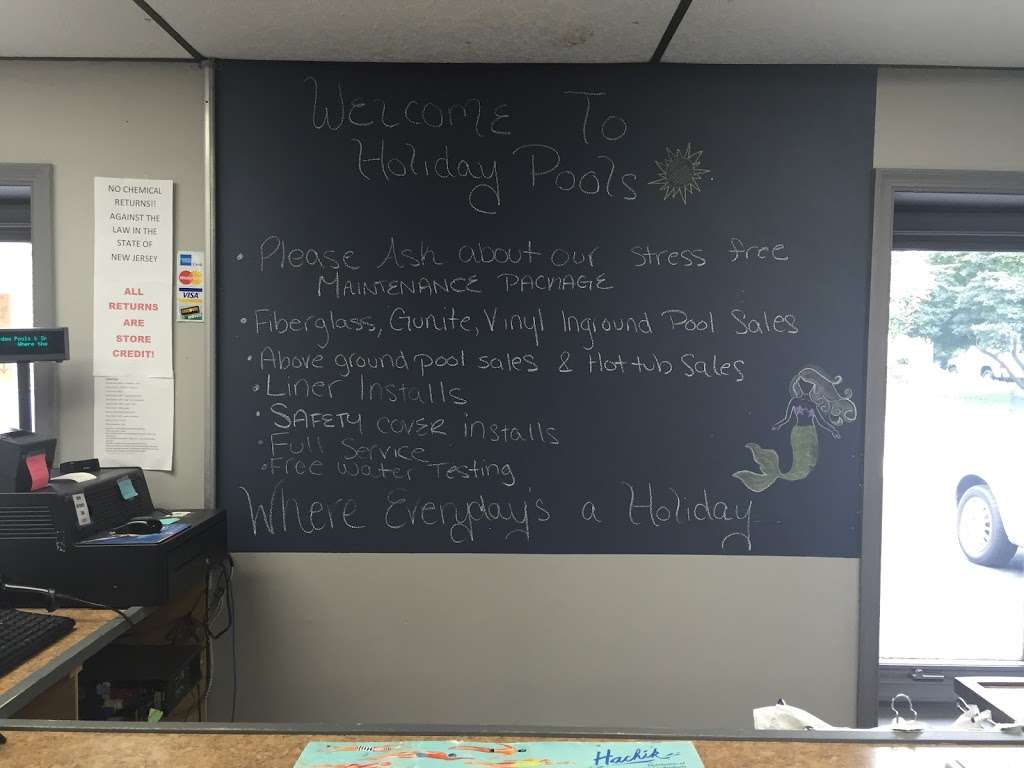 Welcome To
Holiday Pools
• Please Ask about our stress free
Maintenance Package
• Fiberglass, Gunite, Vinyl Inground Pool Sales
• Above ground pool sales & Hot tub Sales
• Liner Installs
• Safety cover installs
• Full Service
• Free Water Testing
Where Everyday's a Holiday
NO CHEMICAL
RETURNS!!
AGAINST THE
LAW IN THE
STATE OF
NEW JERSEY
ALL
RETURNS
ARE
STORE
CREDIT!
MasterCard
VISA
Where the
Hachik